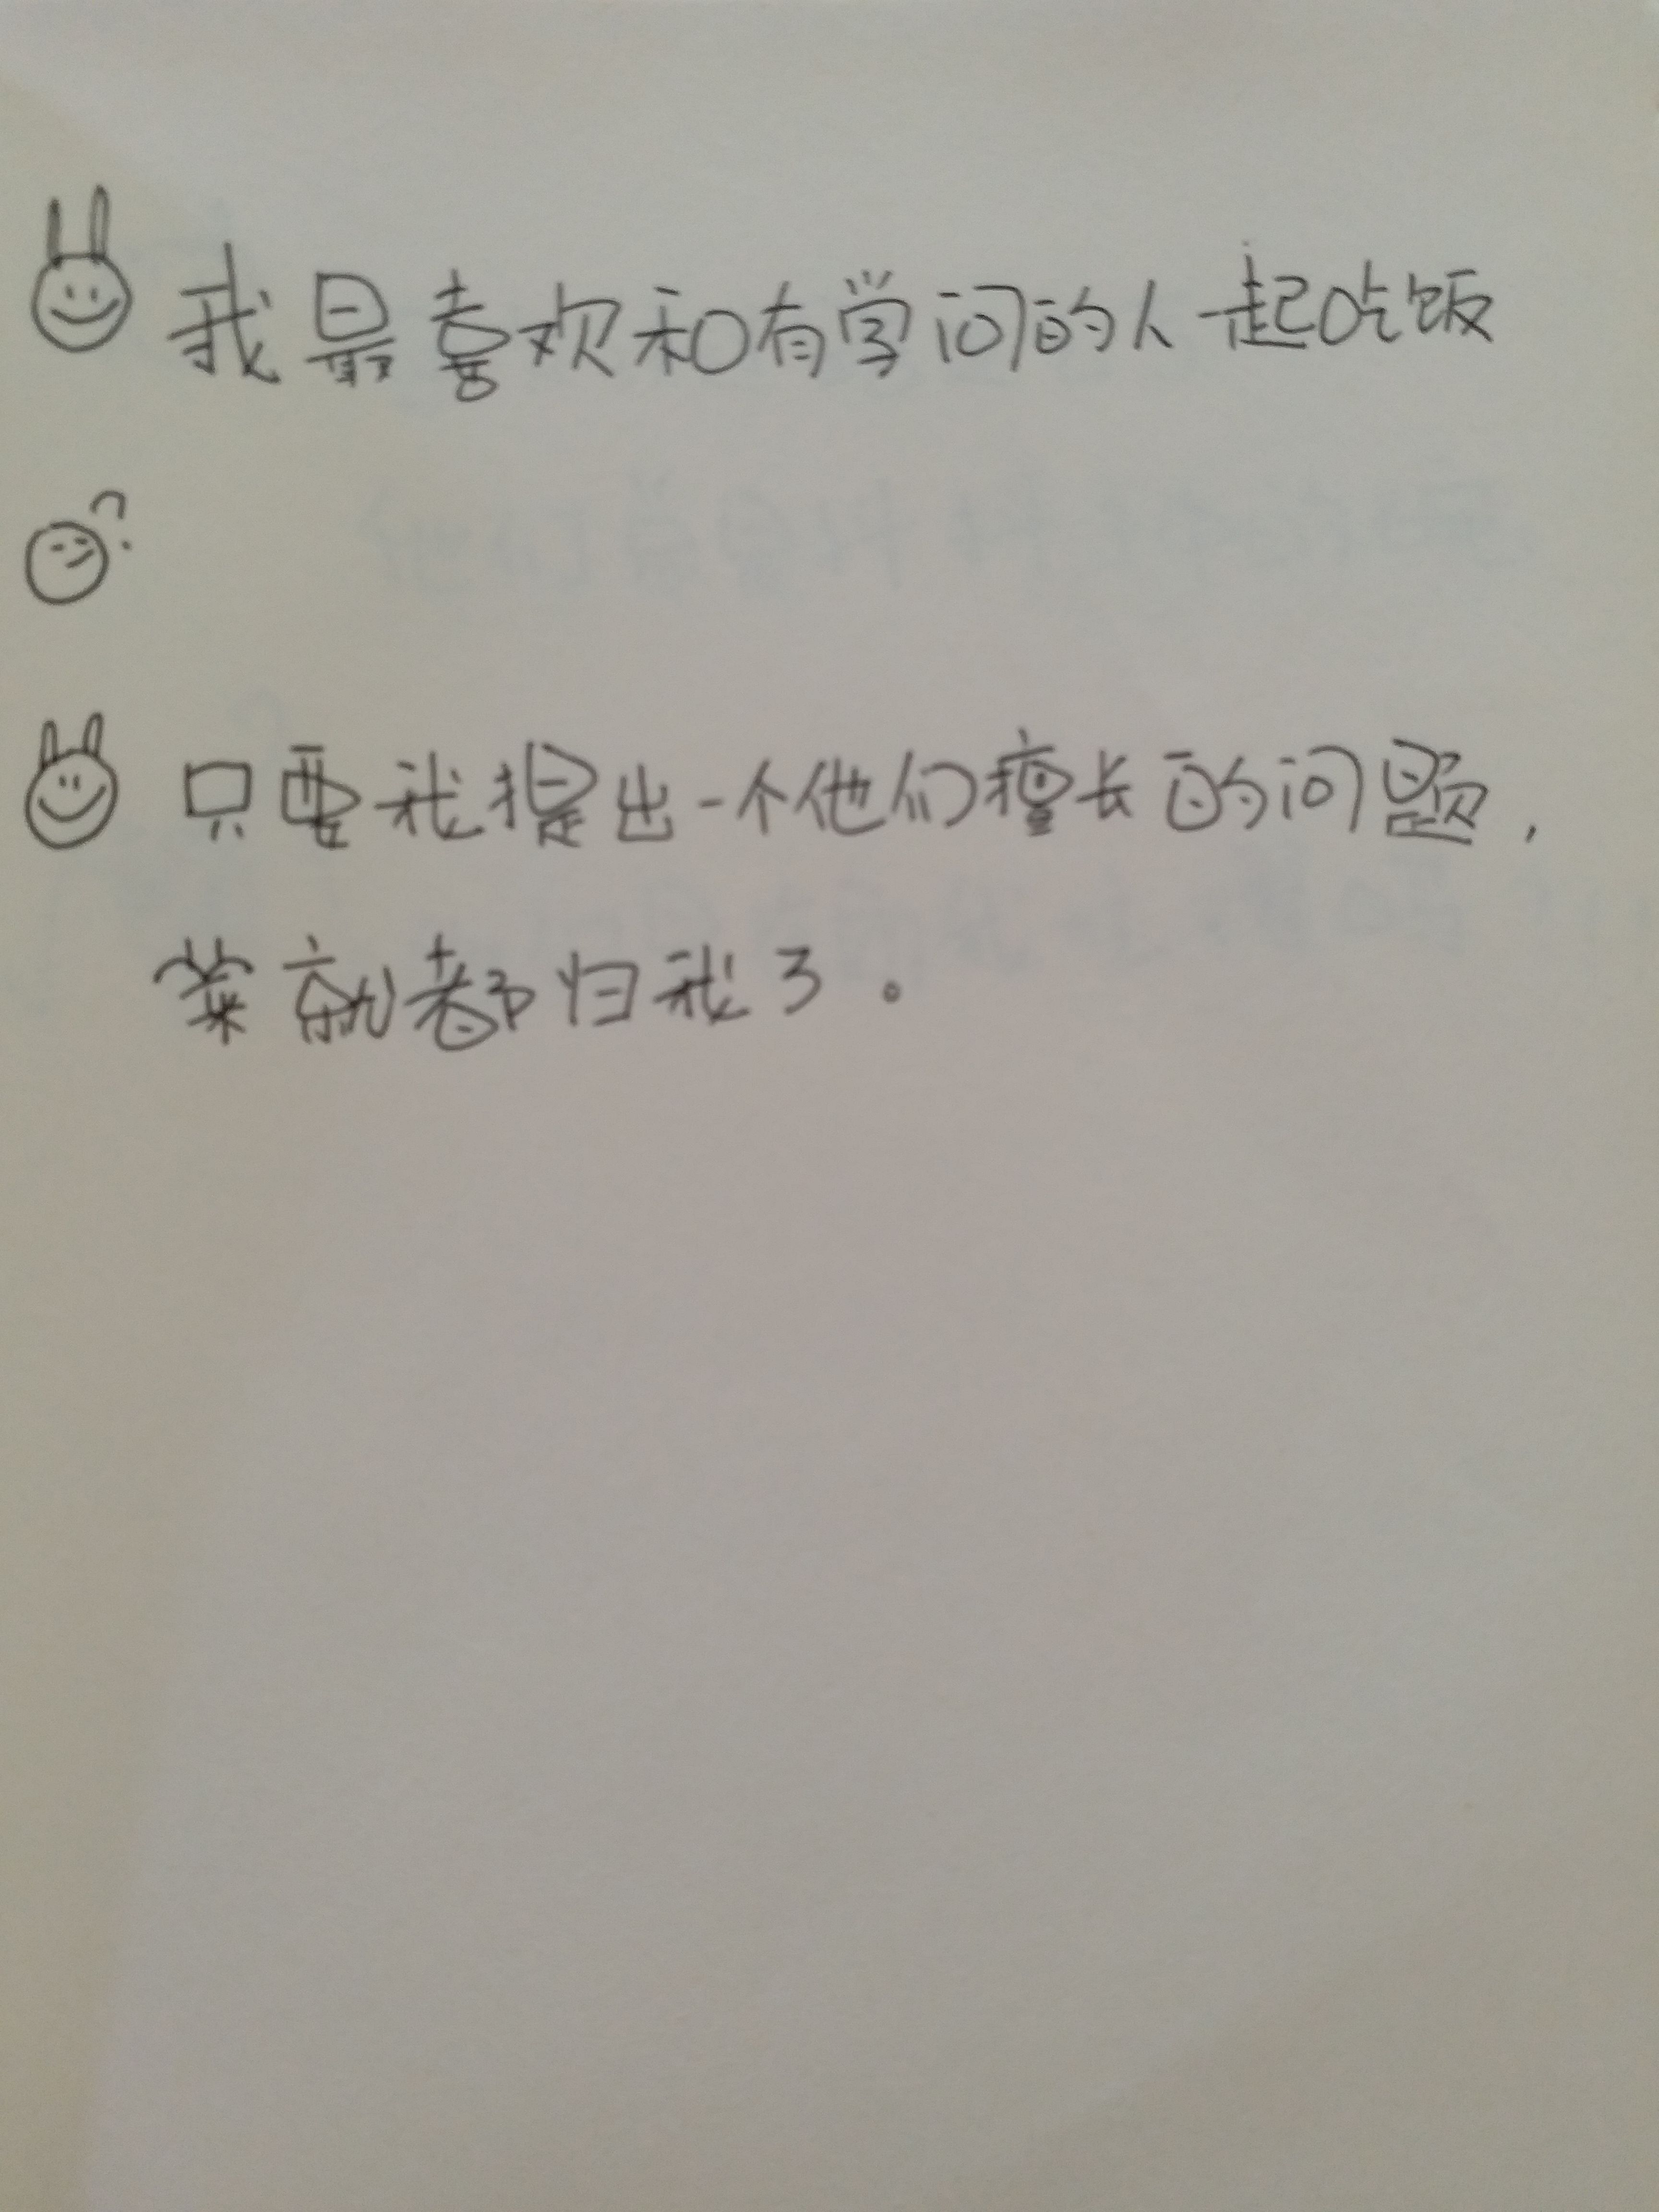 我最喜欢和有学问的人一起吃饭
?
只要我提出一个他们擅长的问题,
菜就都归我了。